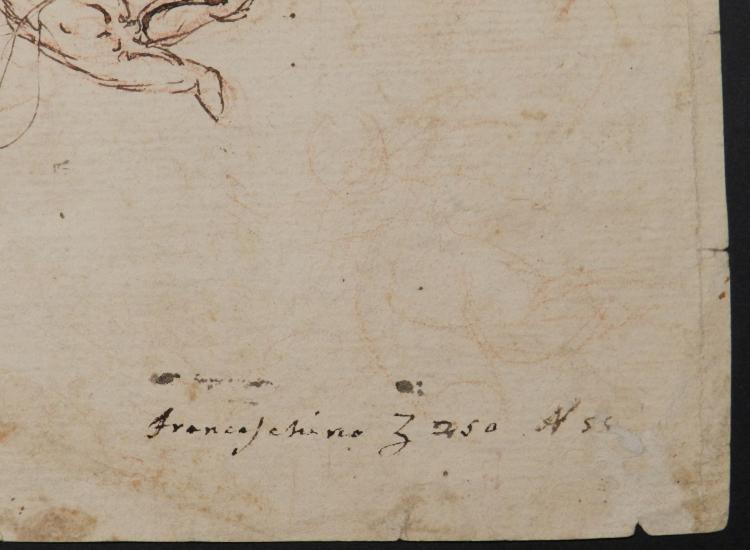 franceschino Z 250 N 55